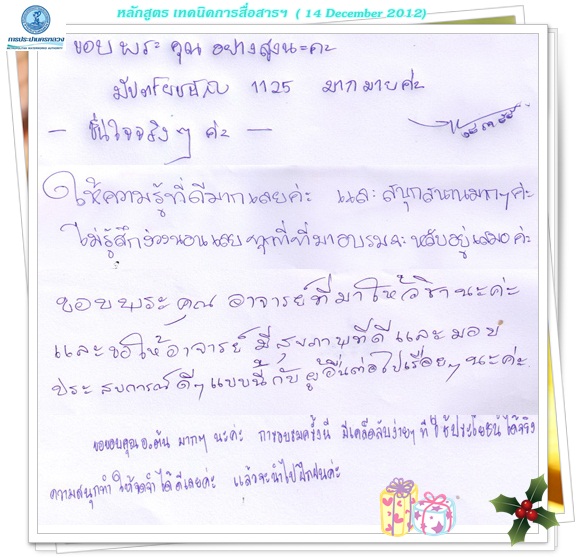 หลักสูตร เทคนิคการสื่อสารฯ ( 14 December 2012)
การประปานครหลวง
ขอบ พระ คุณ อย่างสูงนะคะ
1125 มากมายค่ะ
— ชื่นใจจริงๆ ค่ะ —
ให้ความรู้ที่ดีมากเลยค่ะ และสนุกสนานมากๆค่ะ
ไม่รู้สึกง่วงนอนเลย ที่มาอบรมจะหลับอยู่เสมอค่ะ
ขอบพระคุณ อาจารย์ที่มาให้วิชานะค่ะ
และขอให้อาจารย์ มีสุขภาพที่ดีและมอบ
ประสบการณ์ดีๆแบบนี้กับผู้อื่นต่อไปเรื่อยๆนะค่ะ
ขอขอบคุณ อ.ต้น มากๆ นะค่ะ การอบรมครั้งนี้ มีเคล็ดลับง่ายๆ ที่ใช้ประโยชน์ได้จริง
ความสนุกทำให้จดจำได้ดีเลยค่ะ แล้วจะนำไปฝึกฝนค่ะ